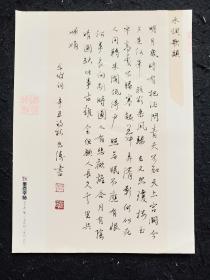 水调歌头
明月几时有把酒问青天不知天上宫阙今
夕是何年我欲乘风归去又恐琼楼玉
宇高处不胜寒起舞弄清影何似在
人间转朱阁低绮户照无眠不应有恨
何事长向别时圆人有悲欢离合月有阴
晴圆缺此事古难全但愿人长久千里共
婵娟
苏轼词 辛丑初秋 书
墨点字帖